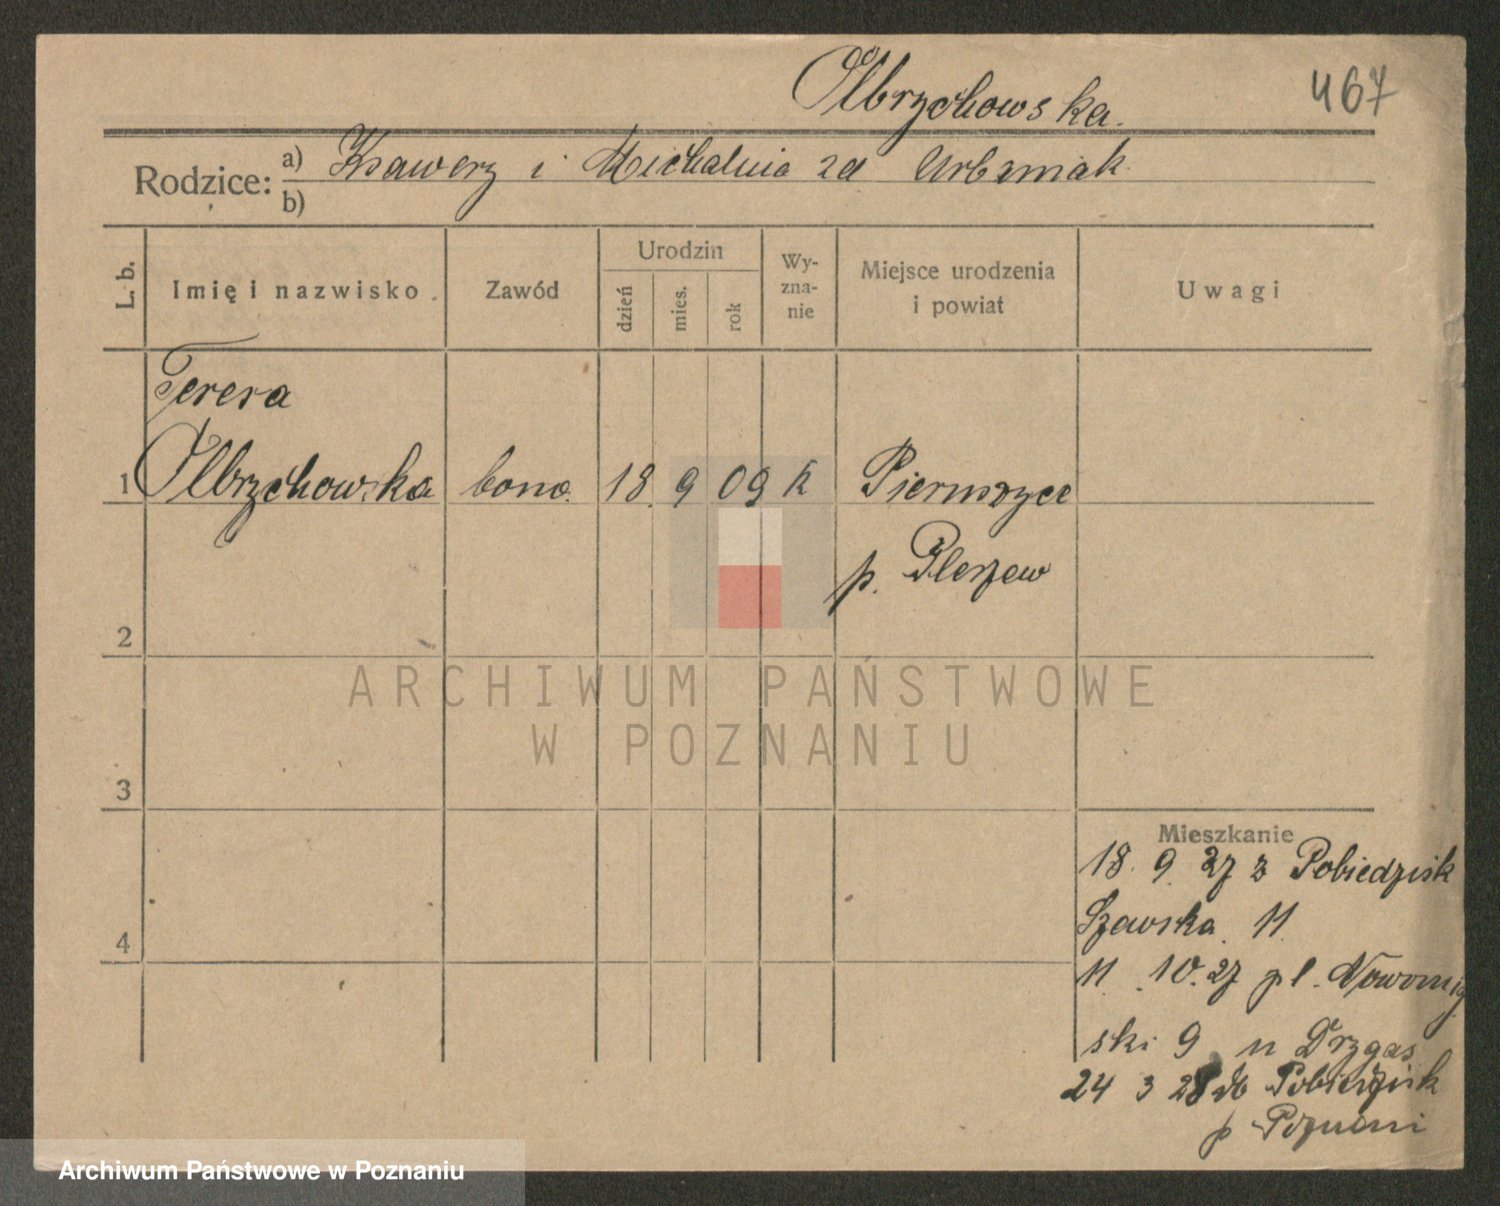 Olbrzychowska.
467
Rodzice: a) Ksawerz i Michalnia zd Urbaniak
b)
L. b.
Imię i nazwisko
Zawód
Urodzin
dzień
mies.
rok
Wy-
zna-
nie
Miejsce urodzenia
i powiat
Uwagi
Teresa
1 Olbrzchowska bona. 18. 9 09 k Pierzyce
p. Pleszew
2
ARCHIWUM PAŃSTWOWE
W POZNANIU
3
Mieszkanie
18. 9. 27 z Pobiedzisk
Szewska 11
4
11. 10. 27 pl. Nowomiej
ski 9 u Drzgas
24 3 28 do Pobiedzisk
p Poznani
Archiwum Państwowe w Poznaniu